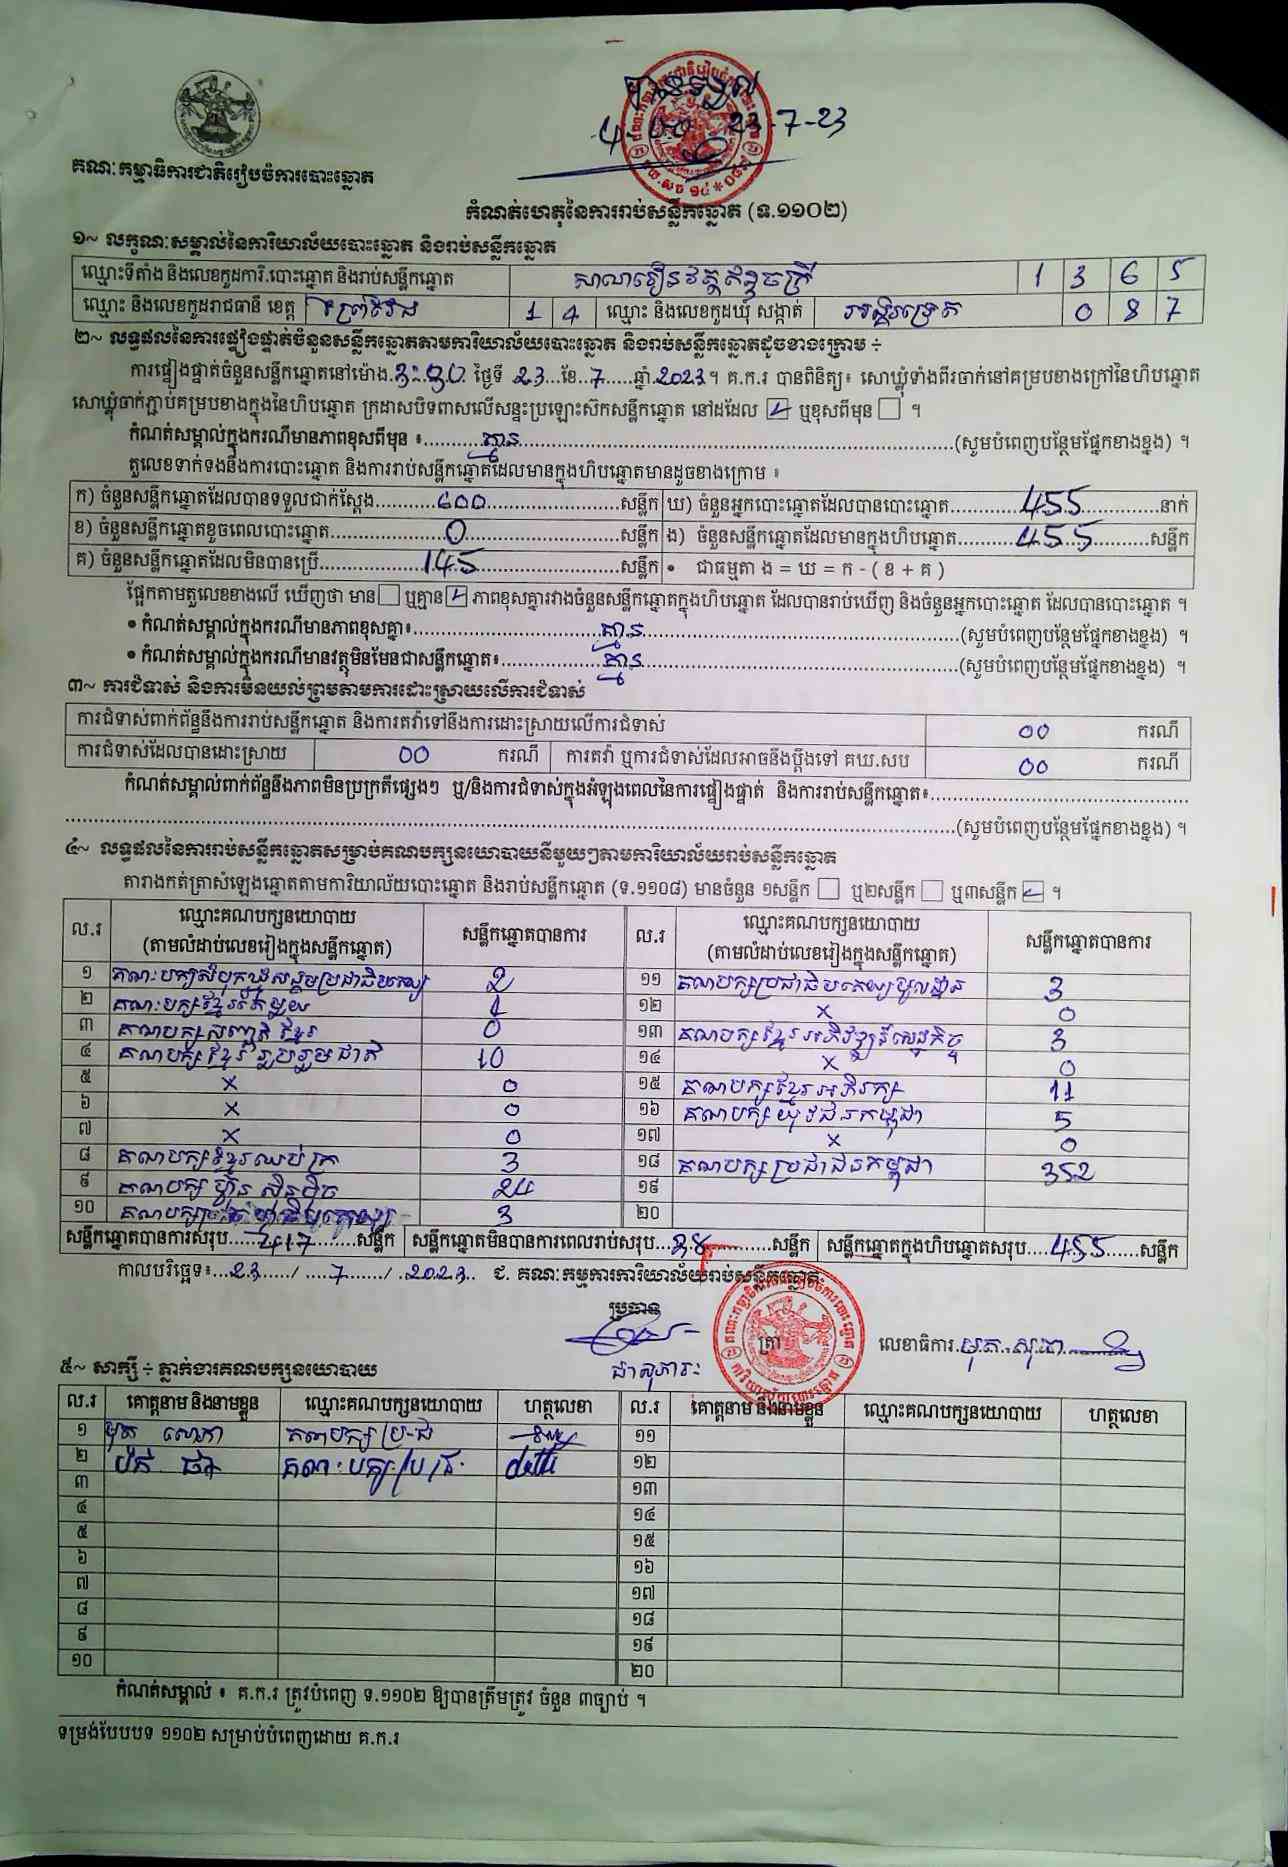 បានទទួល
23-7-23
គណៈកម្មាធិការជាតិរៀបចំការបោះឆ្នោត
កំណត់ហេតុនៃការរាប់សន្លឹកឆ្នោត (ទ.១១០២)
១~ លក្ខណៈសម្គាល់នៃការិយាល័យបោះឆ្នោត និងរាប់សន្លឹកឆ្នោត
ឈ្មោះទីតាំង និងលេខកូដការិ.បោះឆ្នោត និងរាប់សន្លឹកឆ្នោត 1 3 6 5
ឈ្មោះ និងលេខកូដរាជធានី ខេត្ត ព្រៃវែង 1 4 ឈ្មោះ និងលេខកូដឃុំ សង្កាត់ 0 8 7
២~ លទ្ធផលនៃការផ្ទៀងផ្ទាត់ចំនួនសន្លឹកឆ្នោតតាមការិយាល័យបោះឆ្នោត និងរាប់សន្លឹកឆ្នោតដូចខាងក្រោម ÷
ការផ្ទៀងផ្ទាត់ចំនួនសន្លឹកឆ្នោតនៅម៉ោង ថ្ងៃទី 23 ខែ 7 ឆ្នាំ 2023 ។ គ.ក.រ បានពិនិត្យ៖ សោឃ្លុំទាំងពីរចាក់នៅគម្របខាងក្រៅនៃហិបឆ្នោត
សោឃ្លុំចាក់ភ្ជាប់គម្របខាងក្នុងនៃហិបឆ្នោត ក្រដាសបិទពាសលើសន្ទះប្រឡោះស៊កសន្លឹកឆ្នោត នៅដដែល ឬខុសពីមុន ។
កំណត់សម្គាល់ក្នុងករណីមានភាពខុសពីមុន ៖ គ្មាន (សូមបំពេញបន្ថែមផ្នែកខាងខ្នង) ។
តួលេខទាក់ទងនឹងការបោះឆ្នោត និងការរាប់សន្លឹកឆ្នោតដែលមានក្នុងហិបឆ្នោតមានដូចខាងក្រោម ៖
ក) ចំនួនសន្លឹកឆ្នោតដែលបានទទួលជាក់ស្តែង 600 សន្លឹក ឃ) ចំនួនអ្នកបោះឆ្នោតដែលបានបោះឆ្នោត 455 នាក់
ខ) ចំនួនសន្លឹកឆ្នោតខូចពេលបោះឆ្នោត 0 សន្លឹក ង) ចំនួនសន្លឹកឆ្នោតដែលមានក្នុងហិបឆ្នោត 455 សន្លឹក
គ) ចំនួនសន្លឹកឆ្នោតដែលមិនបានប្រើ 145 សន្លឹក • ជាធម្មតា ង = ឃ = ក - ( ខ + គ )
ផ្អែកតាមតួលេខខាងលើ ឃើញថា មាន ឬគ្មាន ភាពខុសគ្នារវាងចំនួនសន្លឹកឆ្នោតក្នុងហិបឆ្នោត ដែលបានរាប់ឃើញ និងចំនួនអ្នកបោះឆ្នោត ដែលបានបោះឆ្នោត ។
• កំណត់សម្គាល់ក្នុងករណីមានភាពខុសគ្នា៖ គ្មាន (សូមបំពេញបន្ថែមផ្នែកខាងខ្នង) ។
• កំណត់សម្គាល់ក្នុងករណីមានវត្ថុមិនមែនជាសន្លឹកឆ្នោត៖ គ្មាន (សូមបំពេញបន្ថែមផ្នែកខាងខ្នង) ។
៣~ ការជំទាស់ និងការមិនយល់ព្រមតាមការដោះស្រាយលើការជំទាស់
ការជំទាស់ពាក់ព័ន្ធនឹងការរាប់សន្លឹកឆ្នោត និងការតវ៉ាទៅនឹងការដោះស្រាយលើការជំទាស់ 00 ករណី
ការជំទាស់ដែលបានដោះស្រាយ 00 ករណី ការតវ៉ា ឬការជំទាស់ដែលអាចនឹងប្តឹងទៅ គឃ.សប 00 ករណី
កំណត់សម្គាល់ពាក់ព័ន្ធនឹងភាពមិនប្រក្រតីផ្សេងៗ ឬ/និងការជំទាស់ក្នុងអំឡុងពេលនៃការផ្ទៀងផ្ទាត់ និងការរាប់សន្លឹកឆ្នោត៖
(សូមបំពេញបន្ថែមផ្នែកខាងខ្នង) ។
៤~ លទ្ធផលនៃការរាប់សន្លឹកឆ្នោតសម្រាប់គណបក្សនយោបាយនីមួយៗតាមការិយាល័យរាប់សន្លឹកឆ្នោត
តារាងកត់ត្រាសំឡេងឆ្នោតតាមការិយាល័យបោះឆ្នោត និងរាប់សន្លឹកឆ្នោត (ទ.១១០៨) មានចំនួន ១សន្លឹក ឬ២សន្លឹក ឬ៣សន្លឹក ។
ល.រ ឈ្មោះគណបក្សនយោបាយ (តាមលំដាប់លេខរៀងក្នុងសន្លឹកឆ្នោត) សន្លឹកឆ្នោតបានការ ល.រ ឈ្មោះគណបក្សនយោបាយ (តាមលំដាប់លេខរៀងក្នុងសន្លឹកឆ្នោត) សន្លឹកឆ្នោតបានការ
១ គណៈបក្សសំបុកឃ្មុំសង្គមប្រជាធិបតេយ្យ 2 ១១ គណបក្សប្រជាធិបតេយ្យមូលដ្ឋាន 3
២ គណៈបក្សខ្មែរតែមួយ 1 ១២ x 0
៣ គណបក្សសញ្ជាតិខ្មែរ 0 ១៣ គណបក្សខ្មែរអភិវឌ្ឍន៍សេដ្ឋកិច្ច 3
៤ គណបក្សខ្មែររួបរួមជាតិ 10 ១៤ x 0
៥ x 0 ១៥ គណបក្សខ្មែរអភិរក្ស 11
៦ x 0 ១៦ គណបក្សយុវជនកម្ពុជា 5
៧ x 0 ១៧ x 0
៨ គណបក្សខ្មែរឈប់ក្រ 3 ១៨ គណបក្សប្រជាជនកម្ពុជា 352
៩ គណបក្សហ្វ៊ុនស៊ិនប៉ិច 24 ១៩
១០ 3 ២០
សន្លឹកឆ្នោតបានការសរុប 417 សន្លឹក សន្លឹកឆ្នោតមិនបានការពេលរាប់សរុប 38 សន្លឹក សន្លឹកឆ្នោតក្នុងហិបឆ្នោតសរុប 455 សន្លឹក
កាលបរិច្ឆេទ៖ 23 / 7 / 2023 ជ. គណៈកម្មការការិយាល័យរាប់សន្លឹកឆ្នោត
ប្រធាន
ត្រា លេខាធិការ
៥~ សាក្សី ÷ ភ្នាក់ងារគណបក្សនយោបាយ
ល.រ គោត្តនាម និងនាមខ្លួន ឈ្មោះគណបក្សនយោបាយ ហត្ថលេខា ល.រ គោត្តនាម និងនាមខ្លួន ឈ្មោះគណបក្សនយោបាយ ហត្ថលេខា
១ គណបក្ស ប្រ-ជ ១១
២ គណៈបក្ស ប្រ.ជ. ១២
៣ ១៣
៤ ១៤
៥ ១៥
៦ ១៦
៧ ១៧
៨ ១៨
៩ ១៩
១០ ២០
កំណត់សម្គាល់ ៖ គ.ក.រ ត្រូវបំពេញ ទ.១១០២ ឱ្យបានត្រឹមត្រូវ ចំនួន ៣ច្បាប់ ។
ទម្រង់បែបបទ ១១០២ សម្រាប់បំពេញដោយ គ.ក.រ